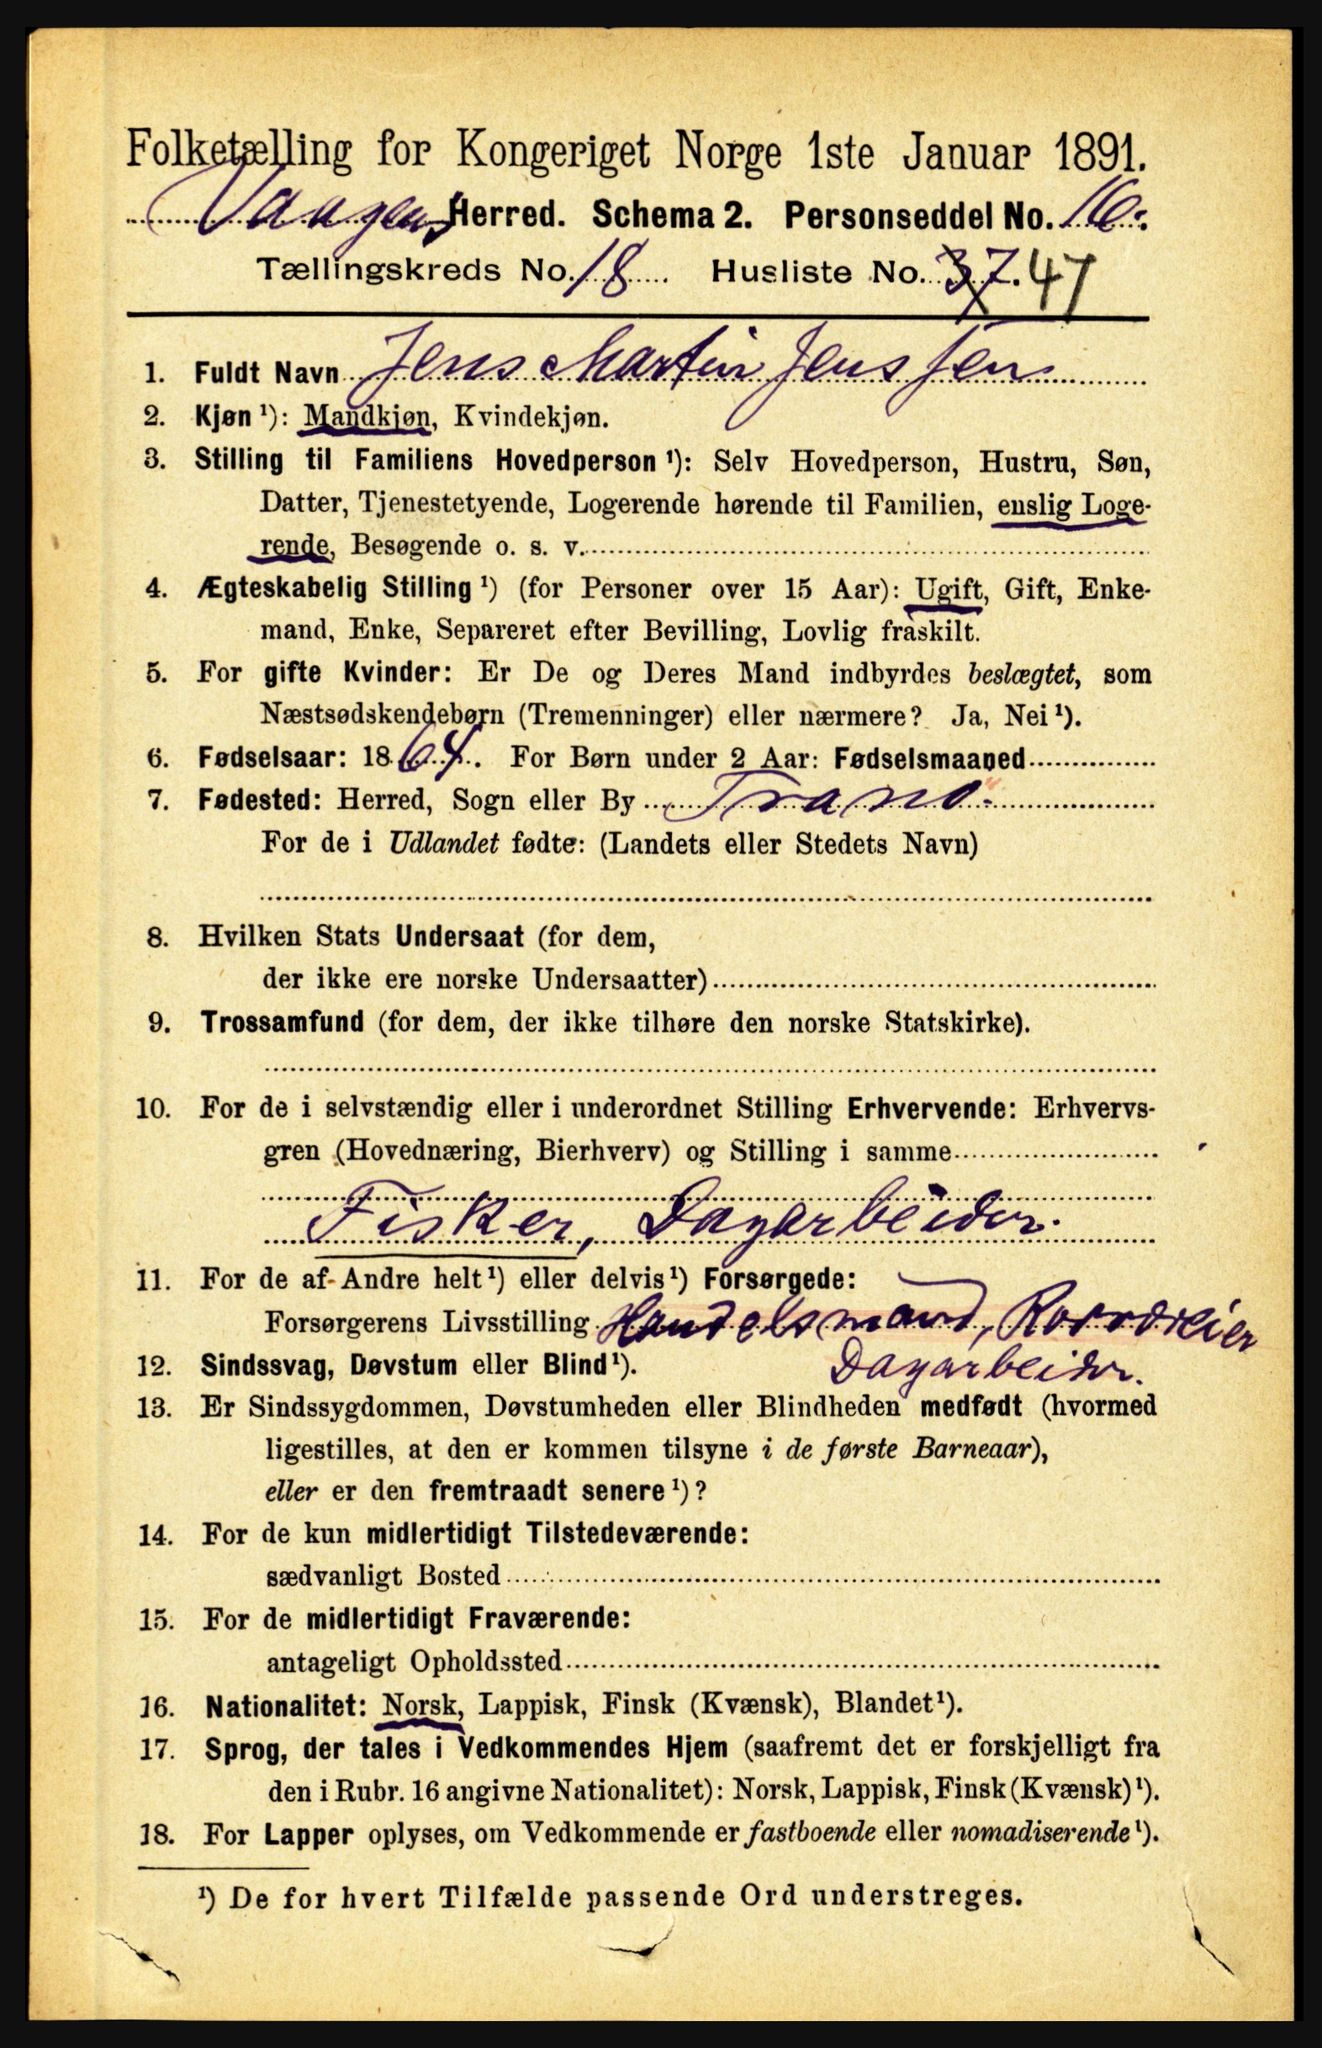 Folketælling for Kongeriget Norge 1ste Januar 1891.
Vaagens Herred. Schema 2. Personseddel No. 16.
Tællingskreds No. 18 Husliste No. 37. 47
1. Fuldt Navn Jens Martin Jenssen
2. Kjøn ¹): Mandkjøn, Kvindekjøn.
3. Stilling til Familiens Hovedperson ¹): Selv Hovedperson, Hustru, Søn,
Datter, Tjenestetyende, Logerende hørende til Familien, enslig Loge-
rende, Besøgende o. s. v.
4. Ægteskabelig Stilling ¹) (for Personer over 15 Aar): Ugift, Gift, Enke-
mand, Enke, Separeret efter Bevilling, Lovlig fraskilt.
5. For gifte Kvinder: Er De og Deres Mand indbyrdes beslægtet, som
Næstsødskendebørn (Tremenninger) eller nærmere? Ja, Nei ¹).
6. Fødselsaar: 1864. For Børn under 2 Aar: Fødselsmaaned
7. Fødested: Herred, Sogn eller By Tranö.
For de i Udlandet fødte: (Landets eller Stedets Navn)
8. Hvilken Stats Undersaat (for dem,
der ikke ere norske Undersaatter)
9. Trossamfund (for dem, der ikke tilhøre den norske Statskirke).
10. For de i selvstændig eller i underordnet Stilling Erhvervende: Erhvervs-
gren (Hovednæring, Bierhverv) og Stilling i samme
Fisker, Dagarbeider.
11. For de af Andre helt ¹) eller delvis ¹) Forsørgede:
Forsørgerens Livsstilling Handelsmand, Rorvæeier
Dagarbeider.
12. Sindssvag, Døvstum eller Blind ¹).
13. Er Sindssygdommen, Døvstumheden eller Blindheden medfødt (hvormed
ligestilles, at den er kommen tilsyne i de første Barneaar),
eller er den fremtraadt senere ¹)?
14. For de kun midlertidigt Tilstedeværende:
sædvanligt Bosted
15. For de midlertidigt Fraværende:
antageligt Opholdssted
16. Nationalitet: Norsk, Lappisk, Finsk (Kvænsk), Blandet ¹).
17. Sprog, der tales i Vedkommendes Hjem (saafremt det er forskjelligt fra
den i Rubr. 16 angivne Nationalitet): Norsk, Lappisk, Finsk (Kvænsk) ¹).
18. For Lapper oplyses, om Vedkommende er fastboende eller nomadiserende ¹).
¹) De for hvert Tilfælde passende Ord understreges.